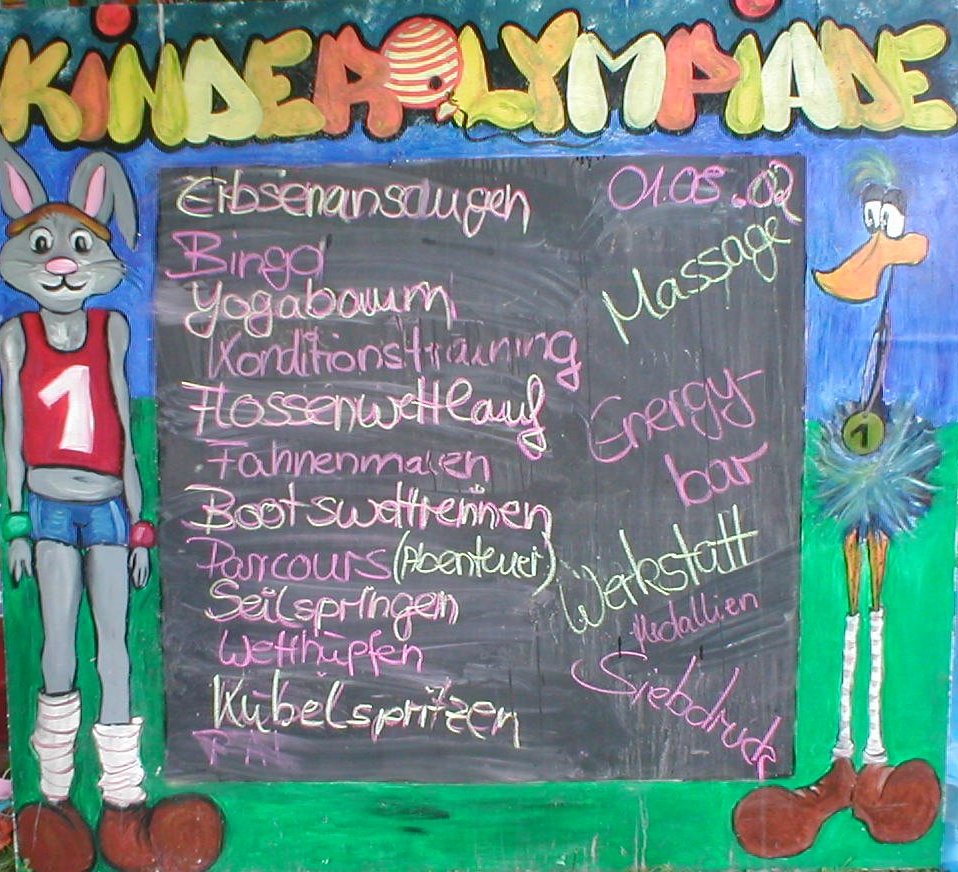 KINDEROLYMPIADE
Erbsenansaugen
Bingo
Yogabaum
Konditionstraining
Flossenwettlauf
Fahnenmalen
Bootswettrennen
Parcours (Abenteuer)
Seilspringen
Wetthüpfen
Kübelspritzen
01.08.02
Massage
Energy-
bar
Werkstatt
Medallien
Siebdruck
1
1